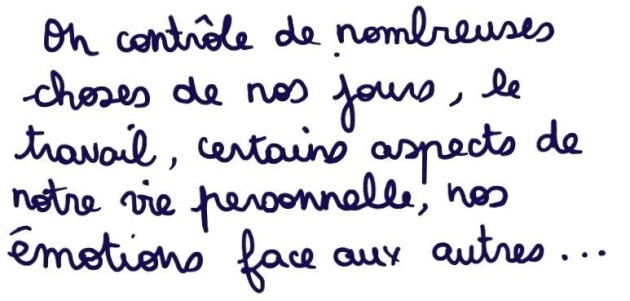 On contrôle de nombreuses
choses de nos jours, le
travail, certains aspects de
notre vie personnelle, nos
émotions face aux autres...